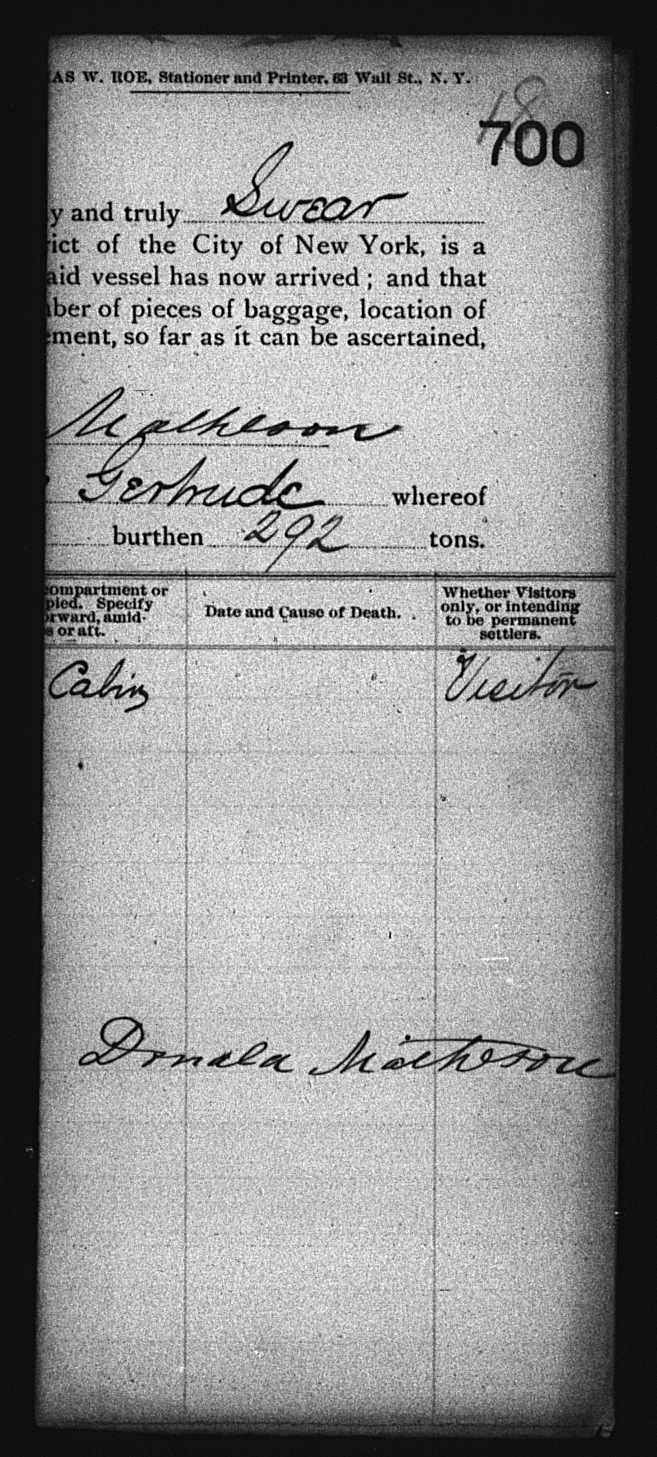 AS W. ROE, Stationer and Printer, 63 Wall St., N. Y.
18
700
y and truly Swear
ict of the City of New York, is a
aid vessel has now arrived; and that
ber of pieces of baggage, location of
ment, so far as it can be ascertained,
Matheson
Gertrude whereof
burthen 292 tons.
ompartment or
pied. Specify
rward, amid-
s or aft.
Date and Cause of Death.
Whether Visitors
only, or intending
to be permanent
settlers.
Cabin
Visitor
Donald Matheson